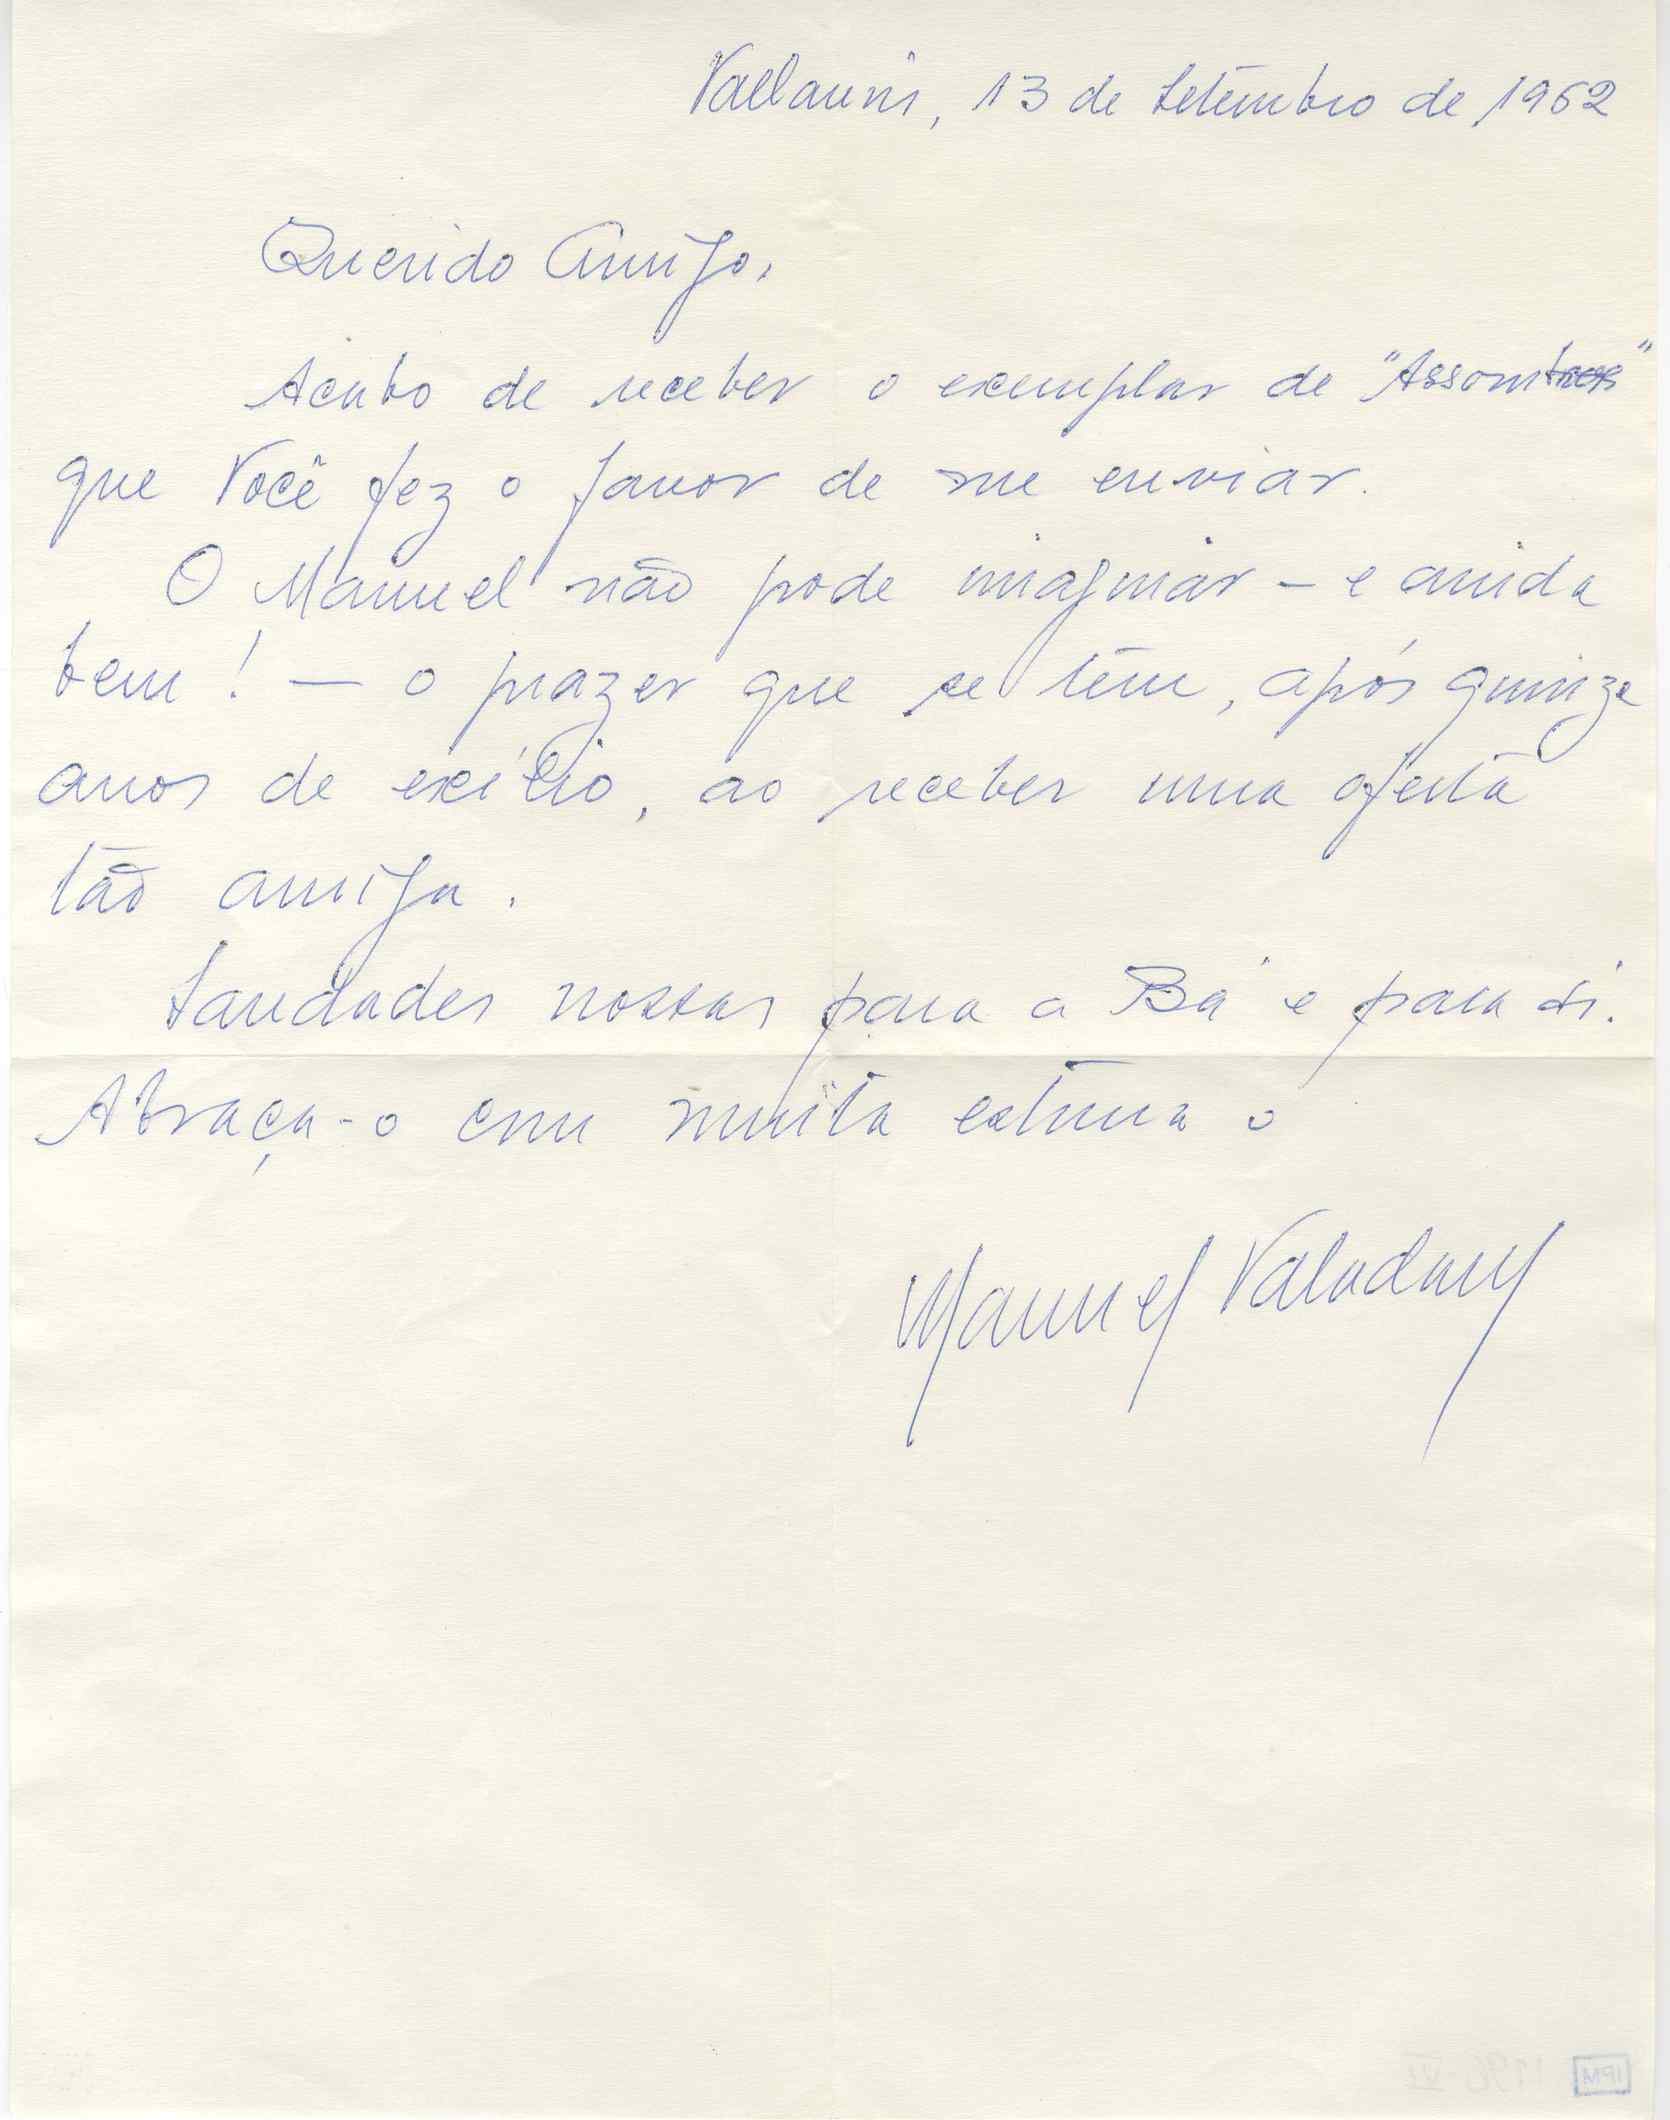 Vallauris, 13 de Setembro de 1962
Querido Amigo,
Acabo de receber o exemplar de "Assombros"
que Você fez o favor de me enviar.
O Manuel não pode imaginar – e ainda
bem! — o prazer que se tem, após quinze
anos de exílio, ao receber uma oferta
tão amiga.
Saudades nossas para a Bá e para si.
Abraça-o com muita estima o
Manuel Valadares
IPM